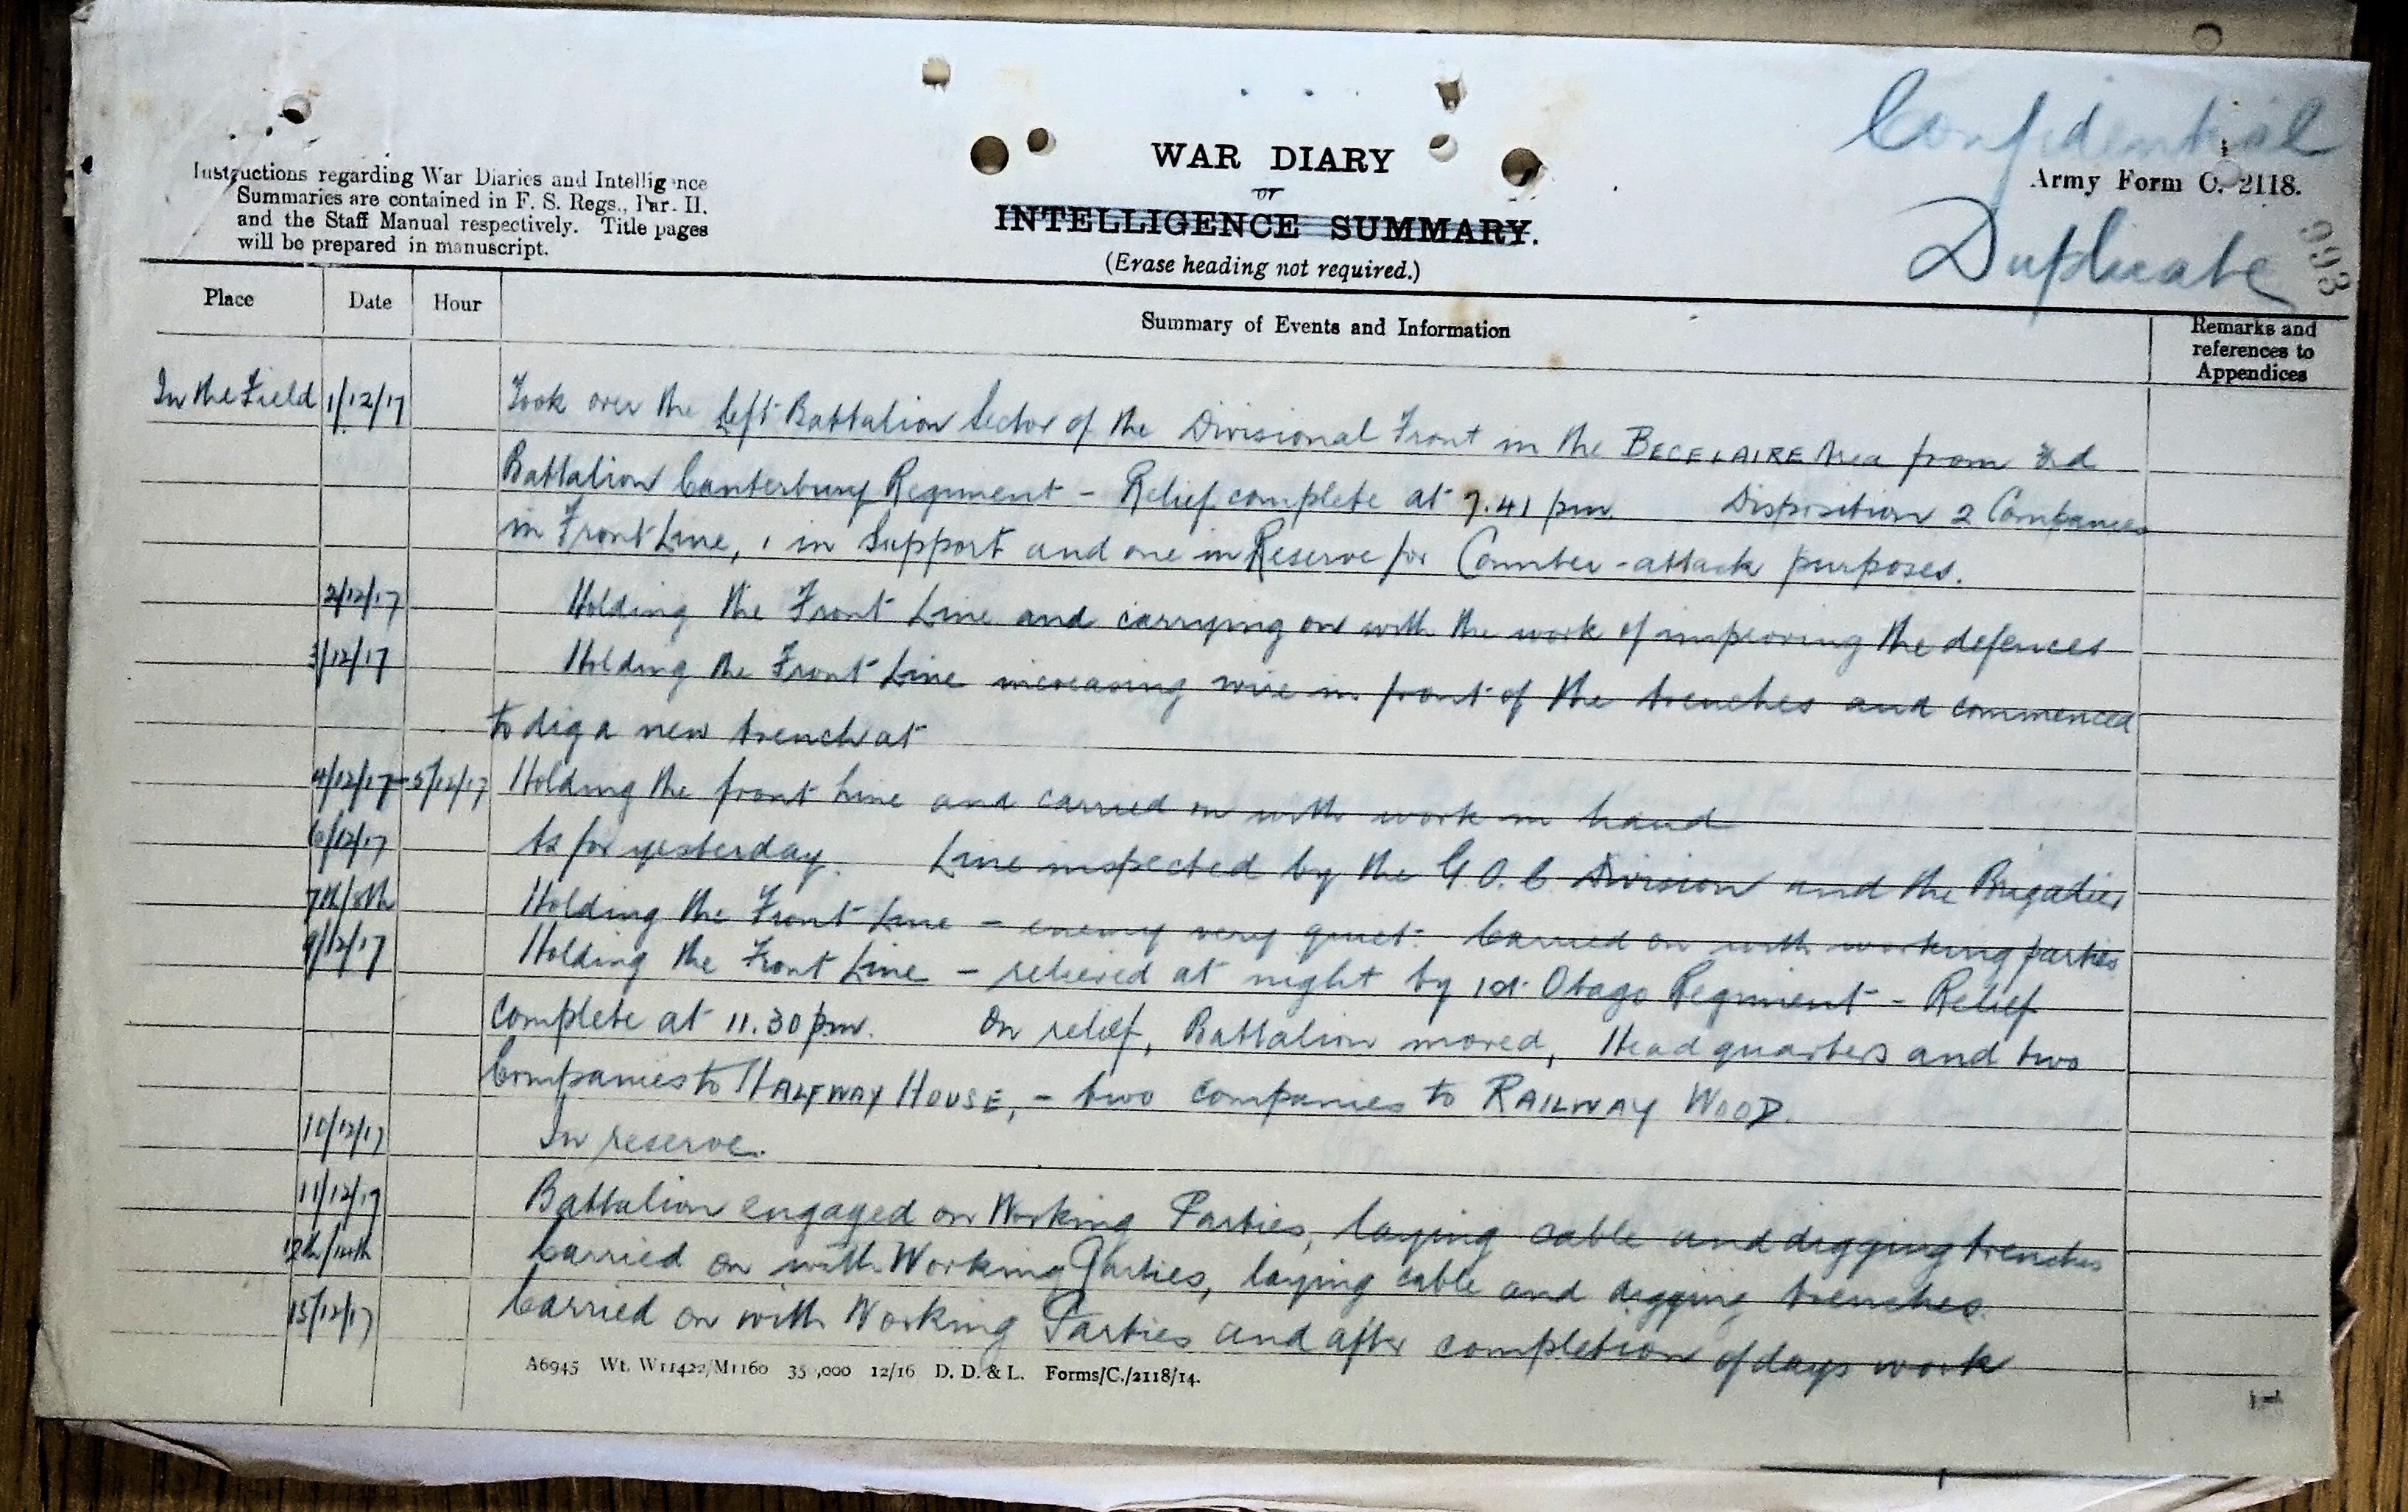 Confidential
Instructions regarding War Diaries and Intelligence
Summaries are contained in F. S. Regs., Par. II.
and the Staff Manual respectively. Title pages
will be prepared in manuscript.
WAR DIARY
or
INTELLIGENCE SUMMARY.
(Erase heading not required.)
Army Form C. 2118.
Duplicate
993
Place Date Hour Summary of Events and Information Remarks and
references to
Appendices
In the Field 1/12/17 Took over the left Battalion Sector of the Divisional Front in the BECELAIRE Area from 3rd
Battalion Canterbury Regiment - Relief complete at 7.41 pm. Disposition 2 Companies
in Front Line, 1 in Support and one in Reserve for Counter-attack purposes.
2/12/17 Holding the Front Line and carrying on with the work of improving the defences
3/12/17 Holding the Front Line increasing wire in front of the trenches and commenced
to dig a new trench at
4/12/17-5/12/17 Holding the front Line and carried on with work in hand
6/12/17 As for yesterday. Line inspected by the G.O.C Division and the Brigadier
7th/8th Holding the Front Line - enemy very quiet. Carried on with working parties
9/12/17 Holding the Front Line - relieved at night by 1st Otago Regiment - Relief
complete at 11.30 pm. On relief, Battalion moved, Headquarters and two
Companies to HALFWAY HOUSE, - two companies to RAILWAY WOOD.
10/12/17 In reserve.
11/12/17 Battalion engaged on Working Parties, laying cable and digging trenches
12th/14th Carried on with Working Parties, laying cable and digging trenches.
15/12/17 Carried on with Working Parties and after completion of days work
A6945 Wt. W11422/M1160 35 ,000 12/16 D. D. & L. Forms/C./2118/14.